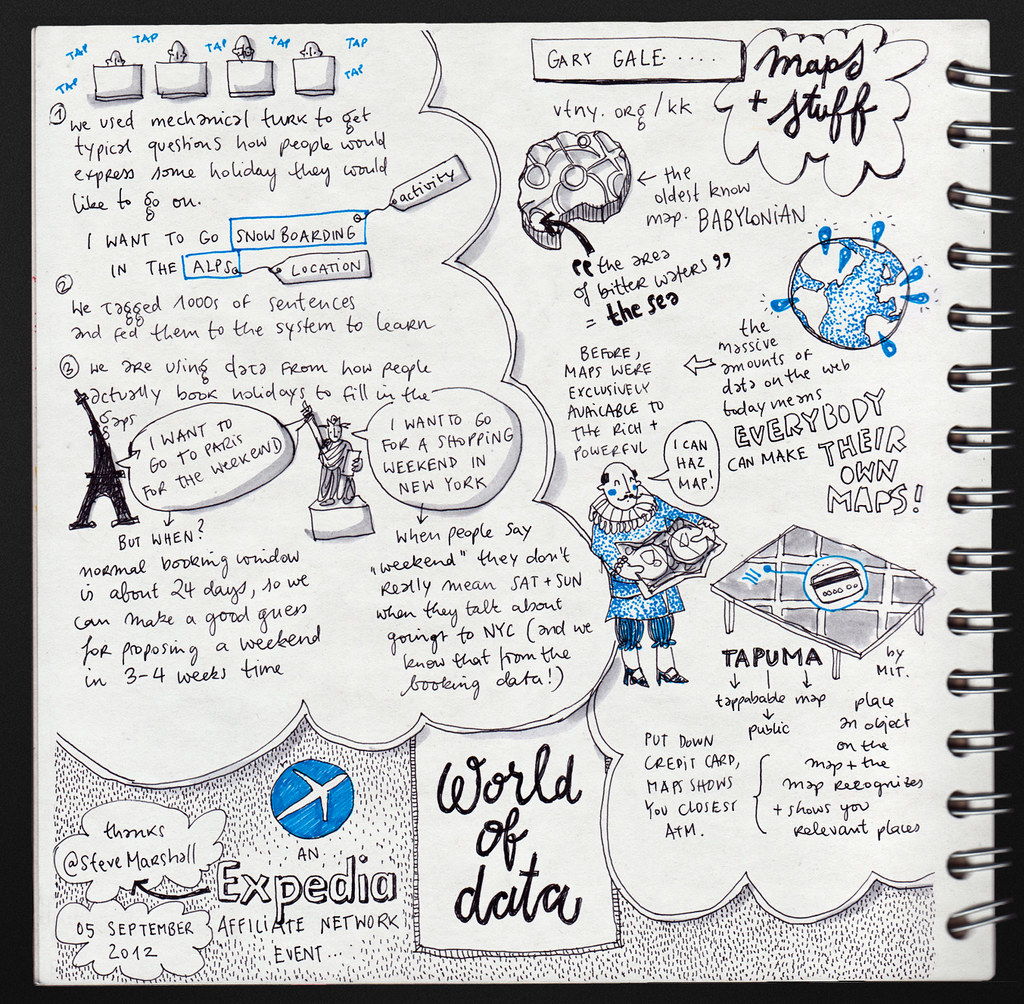 TAP
TAP
TAP
TAP
TAP
TAP
① we used mechanical turk to get
typical questions how people would
express some holiday they would
like to go on.
activity
I WANT TO GO SNOWBOARDING
IN THE ALPS
LOCATION
② We tagged 1000s of sentences
and fed them to the system to learn
③ we are using data from how people
actually book holidays to fill in the
gaps
I WANT TO
GO TO PARIS
FOR THE WEEKEND
I WANT TO GO
FOR A SHOPPING
WEEKEND IN
NEW YORK
BUT WHEN?
normal booking window
is about 24 days, so we
can make a good guess
for proposing a weekend
in 3-4 weeks time
when people say
„weekend" they don't
really mean SAT + SUN
when they talk about
going to NYC (and we
know that from the
booking data!)
GARY GALE.....
maps
+ stuff
vtny.org/kk
← the
oldest know
map. BABYLONIAN
"the area
of bitter waters"
= the sea
BEFORE,
MAPS WERE
EXCLUSIVELY
AVAILABLE TO
THE RICH +
POWERFUL
the
massive
amounts of
data on the web
today means
EVERYBODY
CAN MAKE THEIR
OWN
MAPS!
I CAN
HAZ
MAP!
TAPUMA
by
MIT.
tappabable map
public
place
an object
on the
map + the
map recognizes
+ shows you
relevant places
PUT DOWN
CREDIT CARD,
MAPS SHOWS
YOU CLOSEST
ATM.
thanks
@SteveMarshall
05 SEPTEMBER
2012
AN
Expedia
AFFILIATE NETWORK
EVENT...
World
of
data